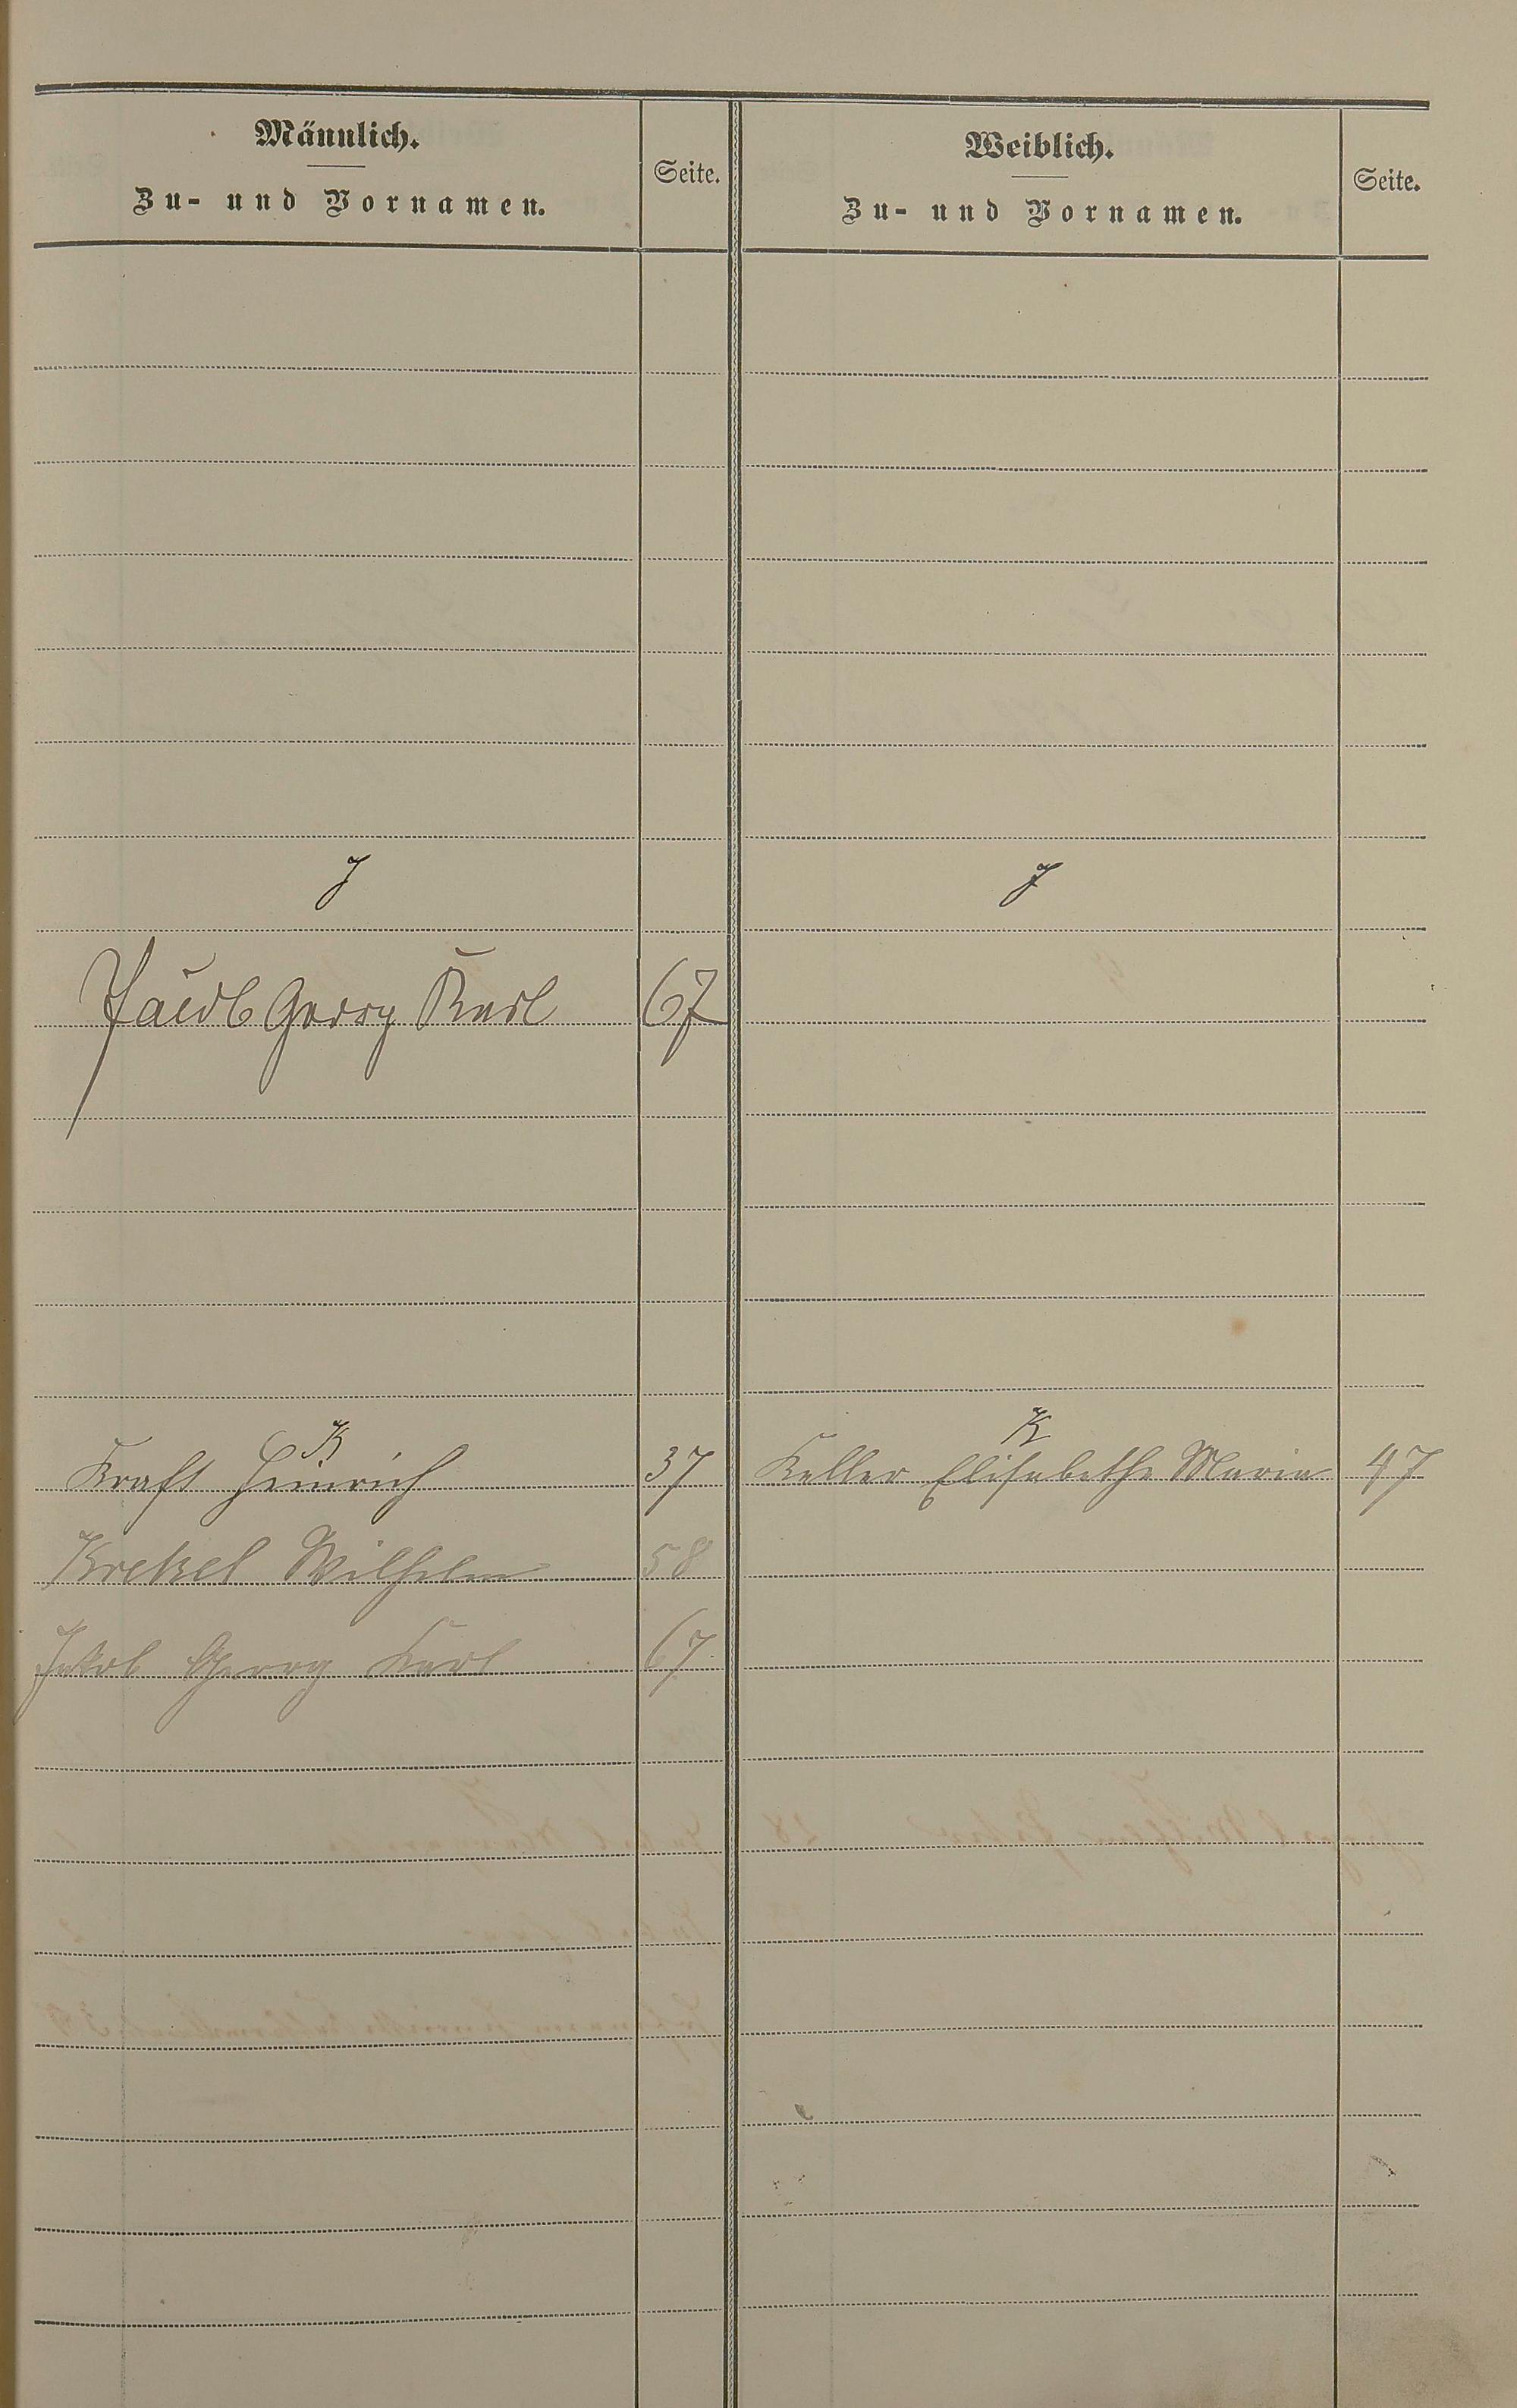 Männlich.
Zu- und Vornamen.
Seite.
Weiblich.
Zu- und Vornamen.
Seite.
J
J
Georg Karl 67
K
K
Kraft Heinrich 37
Keller Elisabethe Maria 47
Krekel Wilhelm 58
Jakob Georg Karl 67